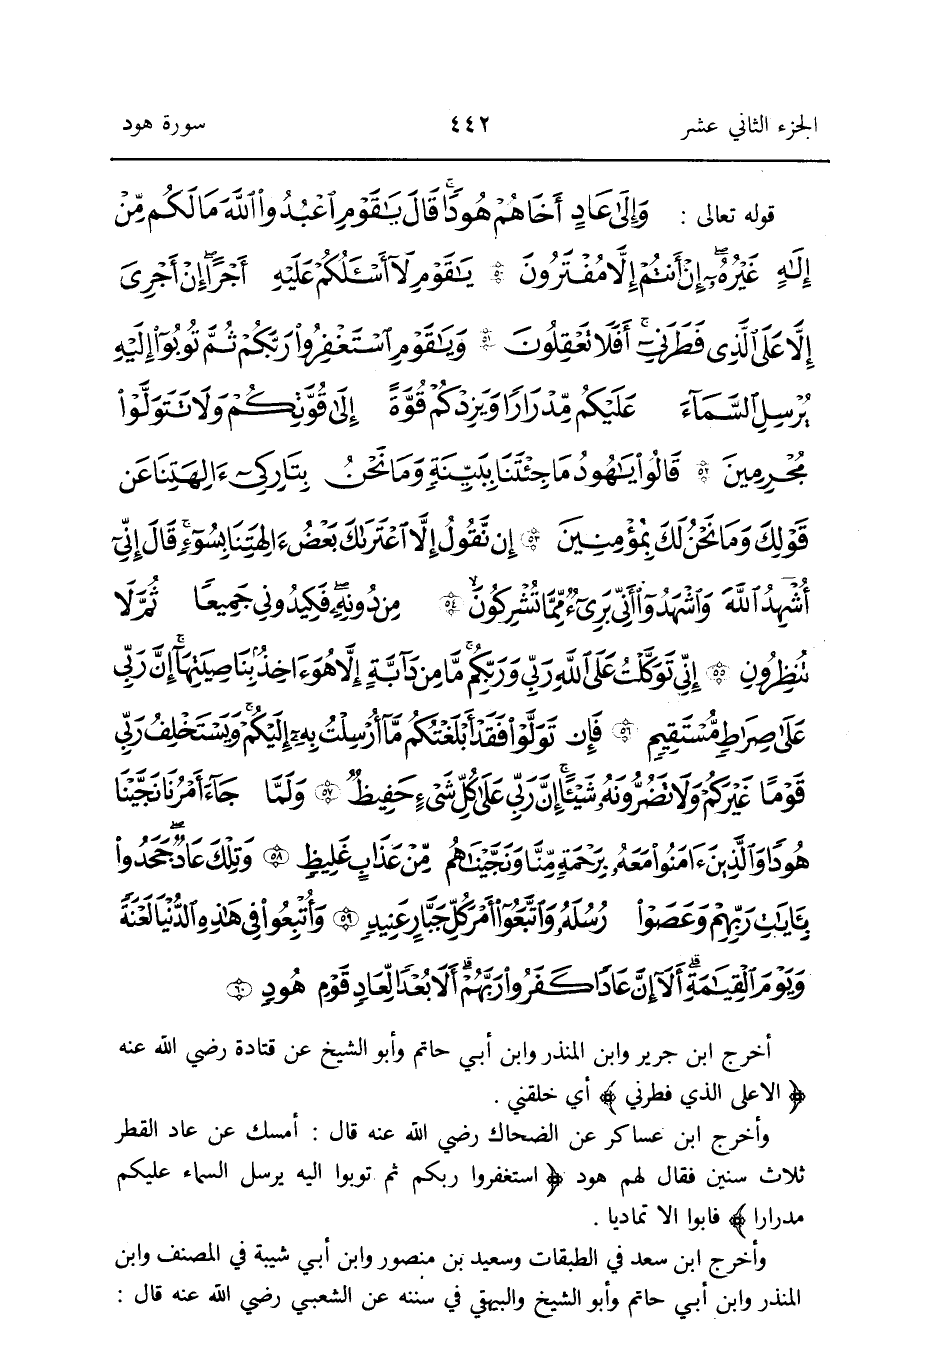 الجزء الثاني عشر ٤٤٢ سورة هود
قوله تعالى : وَإِلَىٰ عَادٍ أَخَاهُمْ هُودًا ۚ قَالَ يَـٰقَوْمِ ٱعْبُدُوا۟ ٱللَّهَ مَا لَكُم مِّنْ
إِلَـٰهٍ غَيْرُهُۥٓ ۖ إِنْ أَنتُمْ إِلَّا مُفْتَرُونَ ۝٥٠ يَـٰقَوْمِ لَآ أَسْـَٔلُكُمْ عَلَيْهِ أَجْرًا ۖ إِنْ أَجْرِىَ
إِلَّا عَلَى ٱلَّذِى فَطَرَنِىٓ ۚ أَفَلَا تَعْقِلُونَ ۝٥١ وَيَـٰقَوْمِ ٱسْتَغْفِرُوا۟ رَبَّكُمْ ثُمَّ تُوبُوٓا۟ إِلَيْهِ
يُرْسِلِ ٱلسَّمَآءَ عَلَيْكُم مِّدْرَارًا وَيَزِدْكُمْ قُوَّةً إِلَىٰ قُوَّتِكُمْ وَلَا تَتَوَلَّوْا۟
مُجْرِمِينَ ۝٥٢ قَالُوا۟ يَـٰهُودُ مَا جِئْتَنَا بِبَيِّنَةٍ وَمَا نَحْنُ بِتَارِكِىٓ ءَالِهَتِنَا عَن
قَوْلِكَ وَمَا نَحْنُ لَكَ بِمُؤْمِنِينَ ۝٥٣ إِن نَّقُولُ إِلَّا ٱعْتَرَىٰكَ بَعْضُ ءَالِهَتِنَا بِسُوٓءٍ ۗ قَالَ إِنِّىٓ
أُشْهِدُ ٱللَّهَ وَٱشْهَدُوٓا۟ أَنِّى بَرِىٓءٌ مِّمَّا تُشْرِكُونَ ۝٥٤ مِن دُونِهِۦ ۖ فَكِيدُونِى جَمِيعًا ثُمَّ لَا
تُنظِرُونِ ۝٥٥ إِنِّى تَوَكَّلْتُ عَلَى ٱللَّهِ رَبِّى وَرَبِّكُم ۚ مَّا مِن دَآبَّةٍ إِلَّا هُوَ ءَاخِذٌۢ بِنَاصِيَتِهَآ ۚ إِنَّ رَبِّى
عَلَىٰ صِرَٰطٍ مُّسْتَقِيمٍ ۝٥٦ فَإِن تَوَلَّوْا۟ فَقَدْ أَبْلَغْتُكُم مَّآ أُرْسِلْتُ بِهِۦٓ إِلَيْكُمْ ۚ وَيَسْتَخْلِفُ رَبِّى
قَوْمًا غَيْرَكُمْ وَلَا تَضُرُّونَهُۥ شَيْـًٔا ۚ إِنَّ رَبِّى عَلَىٰ كُلِّ شَىْءٍ حَفِيظٌ ۝٥٧ وَلَمَّا جَآءَ أَمْرُنَا نَجَّيْنَا
هُودًا وَٱلَّذِينَ ءَامَنُوا۟ مَعَهُۥ بِرَحْمَةٍ مِّنَّا وَنَجَّيْنَـٰهُم مِّنْ عَذَابٍ غَلِيظٍ ۝٥٨ وَتِلْكَ عَادٌ ۖ جَحَدُوا۟
بِـَٔايَـٰتِ رَبِّهِمْ وَعَصَوْا۟ رُسُلَهُۥ وَٱتَّبَعُوٓا۟ أَمْرَ كُلِّ جَبَّارٍ عَنِيدٍ ۝٥٩ وَأُتْبِعُوا۟ فِى هَـٰذِهِ ٱلدُّنْيَا لَعْنَةً
وَيَوْمَ ٱلْقِيَـٰمَةِ ۗ أَلَآ إِنَّ عَادًا كَفَرُوا۟ رَبَّهُمْ ۗ أَلَا بُعْدًا لِّعَادٍ قَوْمِ هُودٍ ۝٦٠
أخرج ابن جرير وابن المنذر وابن أبـي حاتم وأبو الشيخ عن قتادة رضي الله عنه
﴿ الاعلى الذي فطرني ﴾ أي خلقني .
وأخرج ابن عساكر عن الضحاك رضي الله عنه قال : أمسك عن عاد القطر
ثلاث سنين فقال لهم هود ﴿ استغفروا ربكم ثم توبوا اليه يرسل السماء عليكم
مدرارا ﴾ فابوا الا تماديا .
وأخرج ابن سعد في الطبقات وسعيد بن منصور وابن أبـي شيبة في المصنف وابن
المنذر وابن أبـي حاتم وأبو الشيخ والبيهقي في سننه عن الشعبـي رضي الله عنه قال :